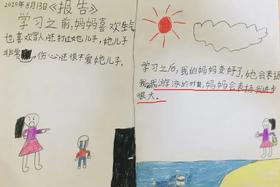 2020年8月13日《报告》
学习之前,妈妈喜欢生气
也喜欢骂人还打过她儿子,她儿子
非常伤心还很不爱她儿子.
学习之后,我的妈妈变好了,她会表扬
我,我游泳的时候,妈妈会表扬我进步
很大。